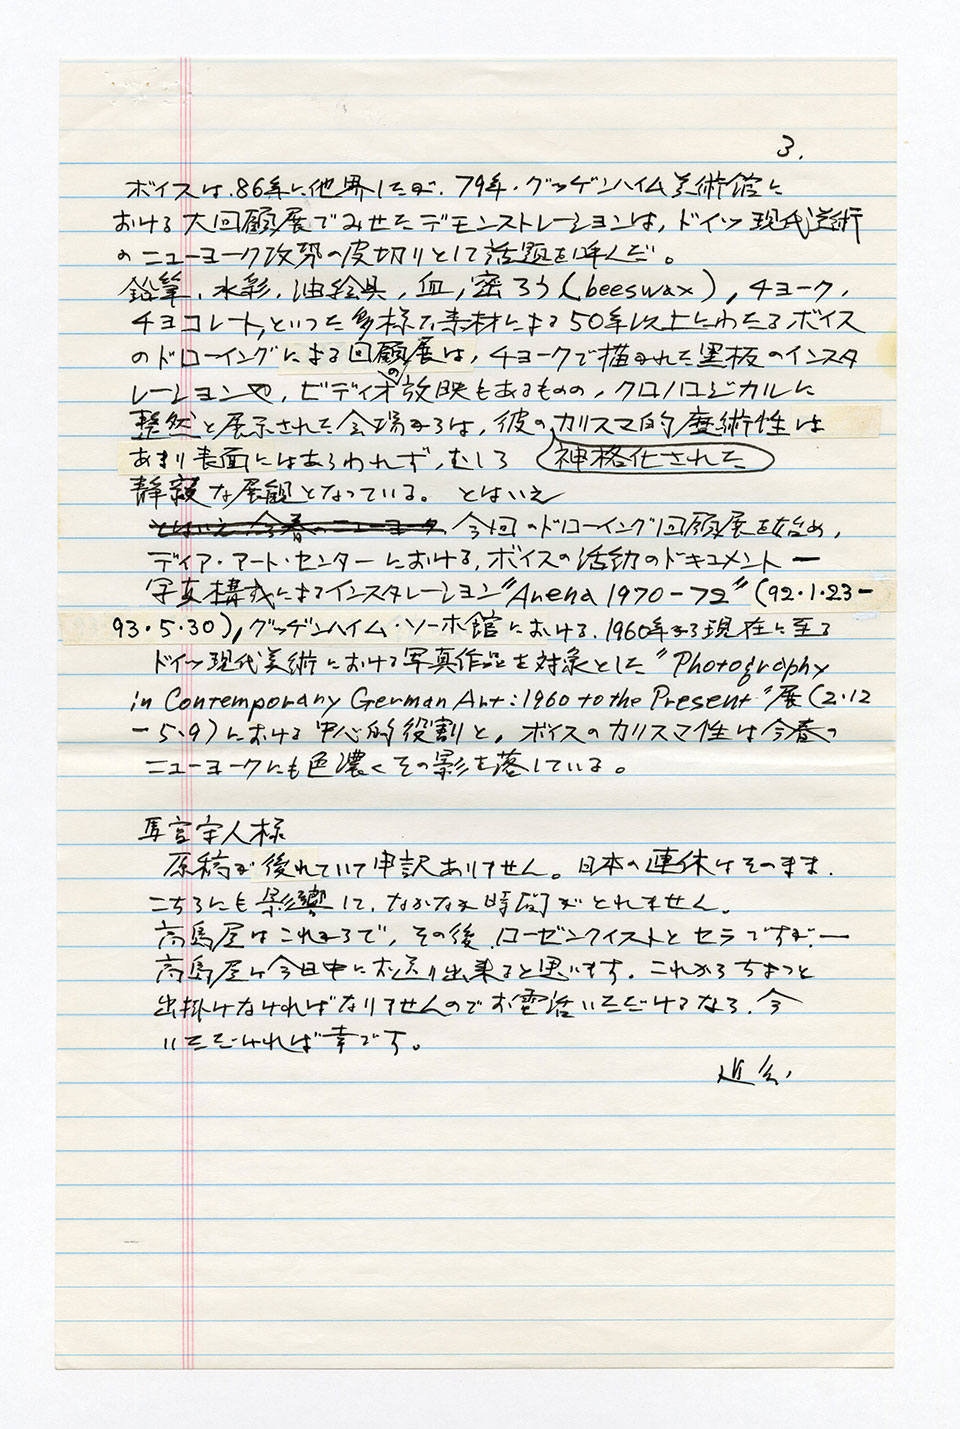 3.
ボイスは、86年に他界したが、79年、グッゲンハイム美術館に
おける大回顧展でみせたデモンストレーションは、ドイツ現代美術
のニューヨーク攻勢の皮切りとして話題を呼んだ。
鉛筆、水彩、油絵具、血、密ろう(beeswax)、チョーク、
チョコレート、といった多様な素材による50年以上にわたるボイス
のドローイングによる回顧展は、チョークで描かれた黒板のインスタ
レーションや、ビディオの放映もあるものの、クロノロジカルに
整然と展示された会場からは、彼のカリスマ的魔術性は
あまり表面にはあらわれず、むしろ神格化された
静寂な展観となっている。とはいえ
とはいえ今春のニューヨーク 今回のドローイング回顧展を始め、
ディア・アート・センターにおける、ボイスの活動のドキュメントー
写真構成によるインスタレーション"Arena 1970-72"(92・1・23-
93・5・30)、グッゲンハイム・ソーホ館における、1960年から現在に至る
ドイツ現代美術における写真作品を対象とした"Photography
in Contemporary German Art: 1960 to the Present"展(2・12
-5・9)における中心的役割と、ボイスのカリスマ性は今春の
ニューヨークにも色濃くその影を落している。
馬宮宇人様
原稿が後れていて申訳ありません。日本の連休はそのまま、
こちらにも影響して、なかなか時間がとれません。
高島屋はこれからで、その後、ローゼンクイストとセラですが、ー
高島屋は今日中にお送り出来ると思います。これからちょっと
出掛けなければなりませんのでお電話いただけるなら、今
いただければ幸です。